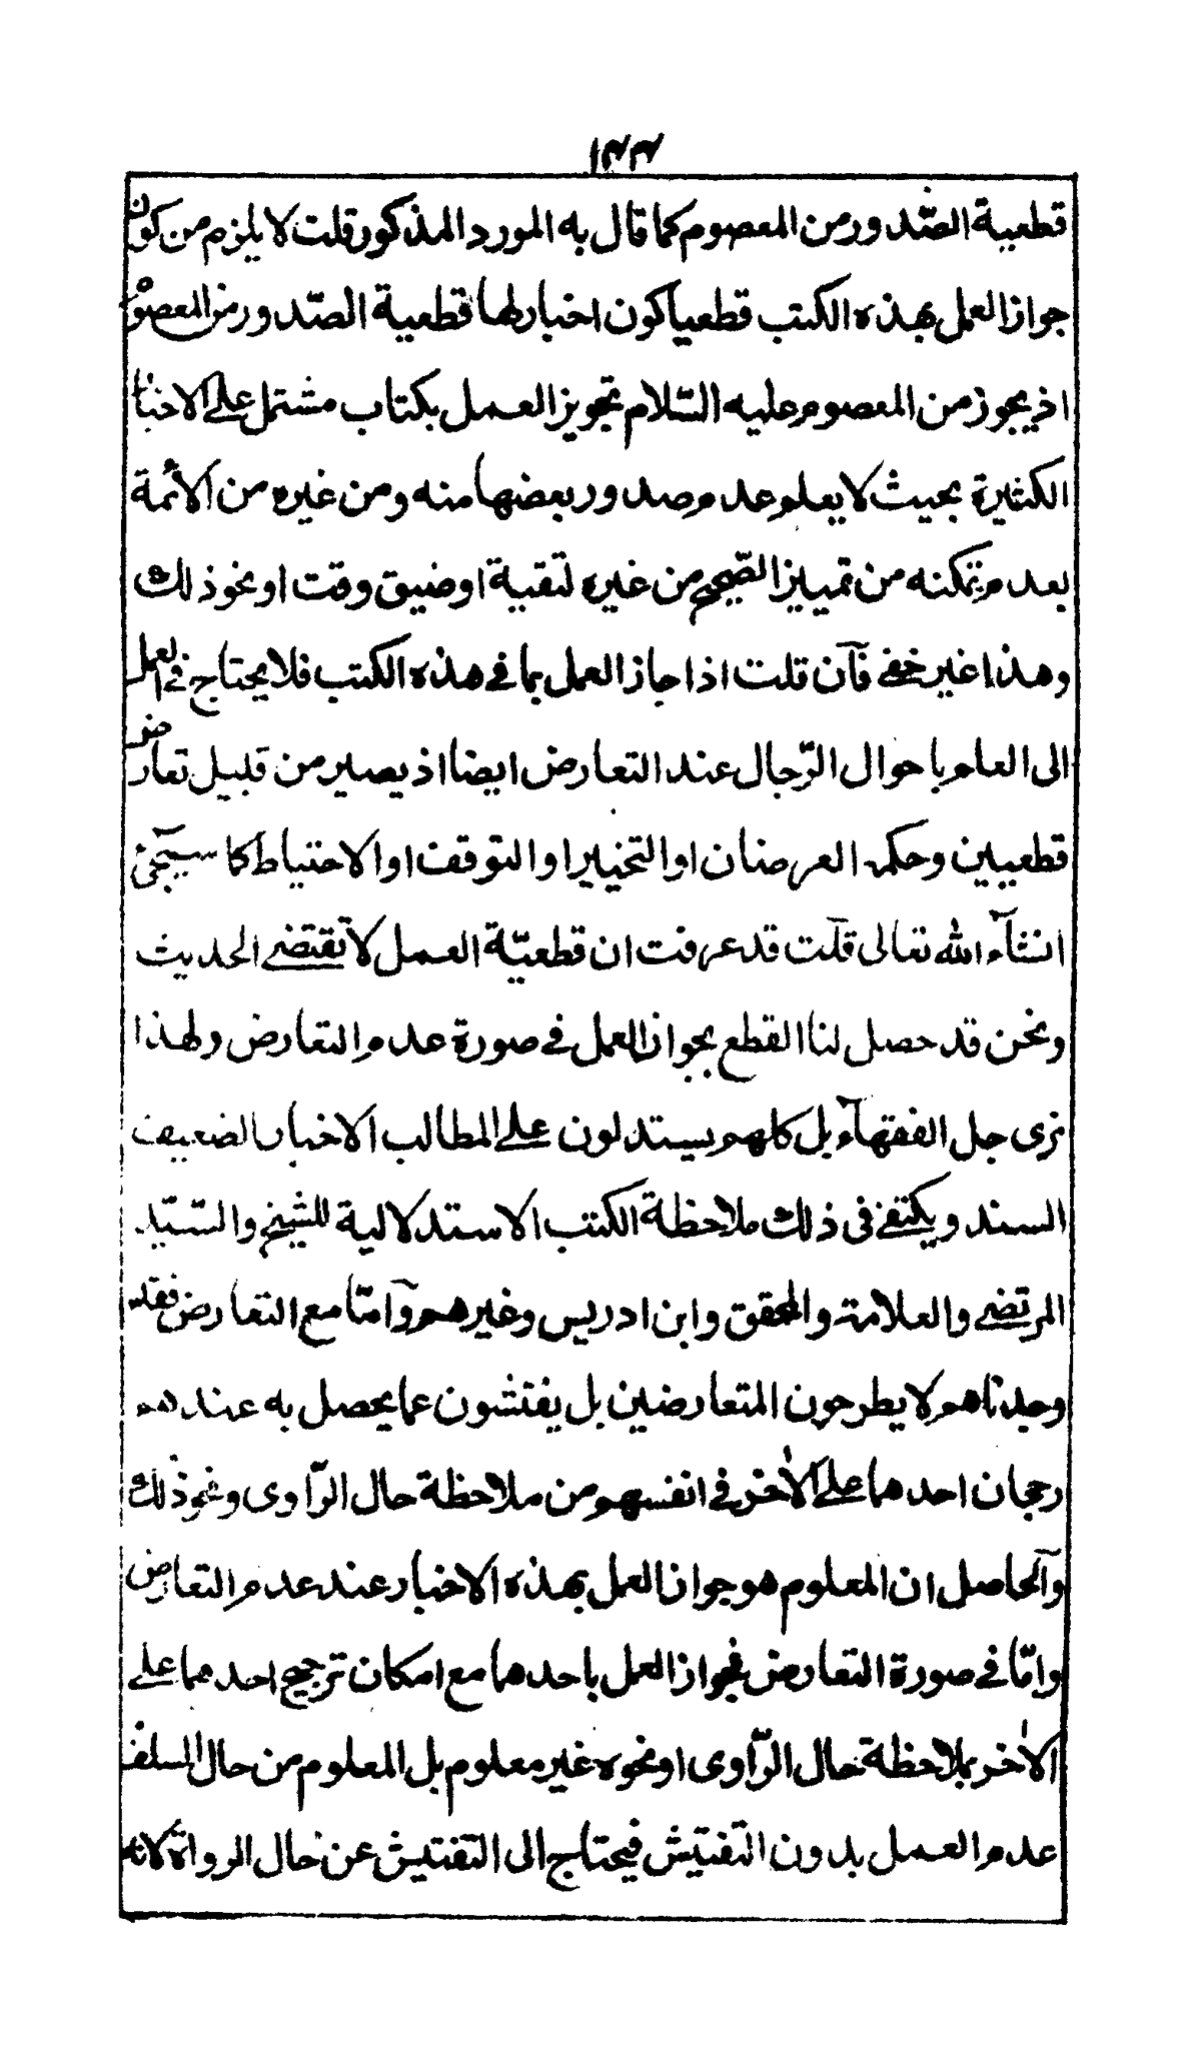 ١٣٣
قطعية الصّدور من المعصوم كما قال به المورد المذكور قلت لا يلزم من كون
جواز العمل بهذه الكتب قطعيا كون اخبارها قطعية الصّدور من المعصوم
اذ يجوز من المعصوم عليه السّلام تجويز العمل بكتاب مشتمل على الاخبار
الكثيرة بحيث لا يعلم عدم صدور بعضها منه ومن غيره من الأئمة
بعدم تمكنه من تمييز الصّحيح من غيره لتقية او ضيق وقت او نحو ذلك
وهذا غير خفى فآن قلت اذا جاز العمل بما فى هذه الكتب فلا يحتاج فى العمل
الى العلم باحوال الرّجال عند التعارض ايضا اذ يصير من قبيل تعارض
قطعيين وحكمه العرضان او التخيير او التوقف او الاحتياط كما سيجئ
انشآء الله تعالى قلت قد عرفت ان قطعيّة العمل لا تقتضى الحديث
ونحن قد حصل لنا القطع بجواز العمل فى صورة عدم التعارض ولهذا
نرى جل الفقهآء بل كلهم يستدلون على المطالب الاخبار الضعيف
السند ويكتفى فى ذلك ملاحظة الكتب الاستدلالية للشيخ والسّيّد
المرتضى والعلامة والمحقق وابن ادريس وغيرهم وآمّا مع التعارض فقد
وجدناهم لا يطرحون المتعارضين بل يفتشون عما يحصل به عندهم
رجحان احدهما على الأخر فى انفسهم من ملاحظة حال الرّاوى ونحو ذلك
وآلحاصل ان المعلوم هو جواز العمل بهذه الاخبار عند عدم التعارض
وامّا فى صورة التعارض فجواز العمل باحدهما مع امكان ترجيح احدهما على
الأخر بملاحظة حال الرّاوى او نحوه غير معلوم بل المعلوم من حال السلف
عدم العمل بدون التّفتيش فيحتاج الى التّفتيش عن حال الرواة لانه